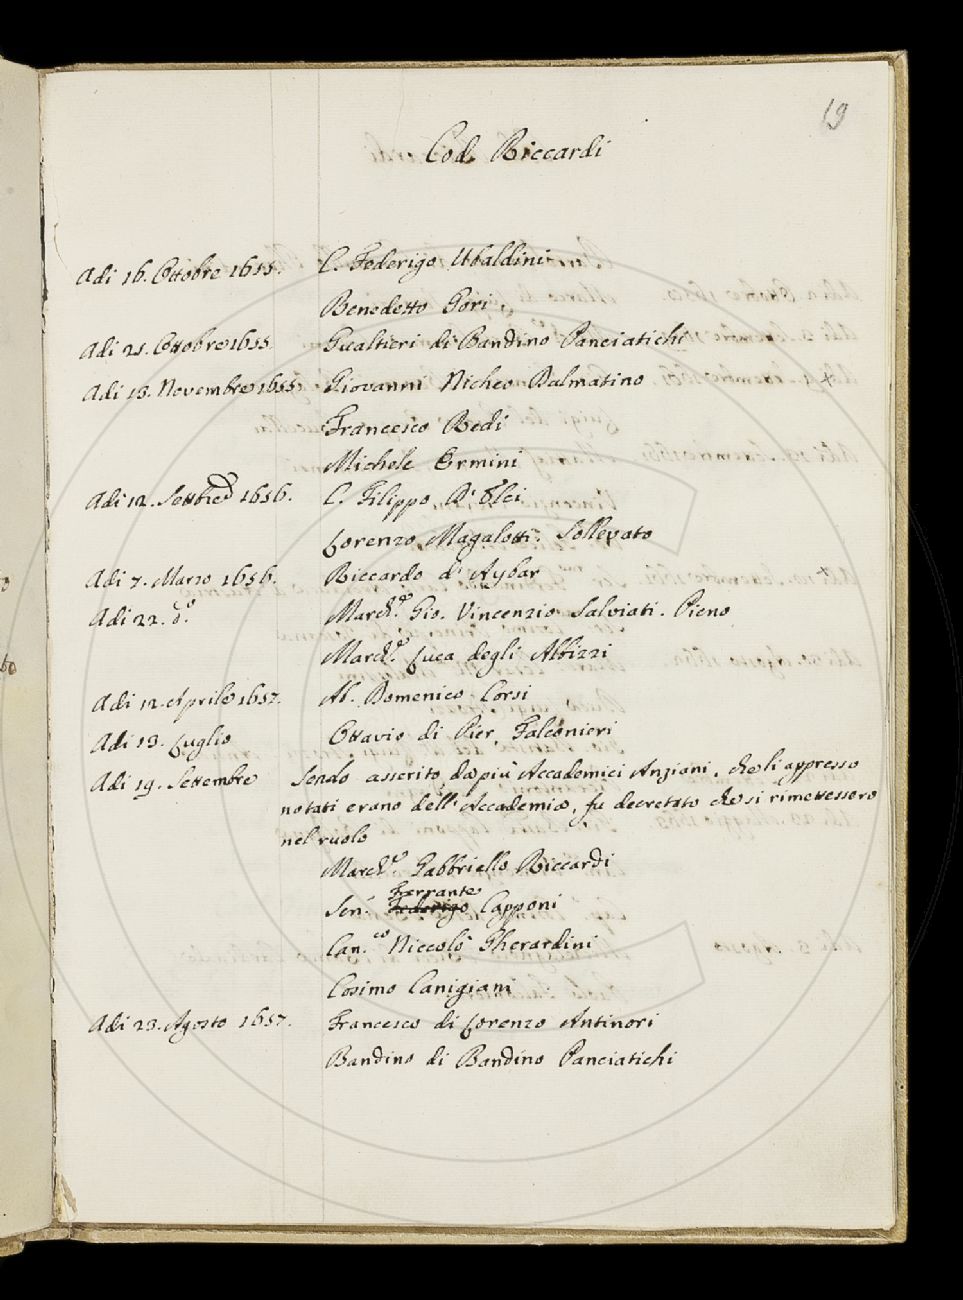 19
Cod. Riccardi
Adi 16. Ottobre 1655. C. Federigo Ubaldini
Benedetto Gori
Adi 21. Ottobre 1655. Gualtieri di Bandino Panciatichi
Adi 13. Novembre 1655 Giovanni Nicheo Dalmatino
Francesco Redi
Michele Ermini
Adi 12. Settbre 1656. C. Filippo D' Elci
Lorenzo Magalotti. Sollevato
Adi 7. Marzo 1656. Riccardo d' Aybar
Adi 22. do March.e Gio. Vincenzio Salviati. Pieno
March.e Luca degli Albizzi
Adi 12. Aprile 1657. Al. Domenico Corsi
Adi 13. Luglio Ottavio di Pier, Falconieri
Adi 19. Settembre Sendo asserito da più Accademici Anziani, che li appresso
notati erano dell' Accademia, fu decretato che si rimettessero
nel ruolo
March.e Gabbriello Riccardi
Ferrante
Sen.r Federigo Capponi
Can.co Niccolò Gherardini
Cosimo Canigiani
Adi 23. Agosto 1657. Francesco di Lorenzo Antinori
Bandino di Bandino Panciatichi